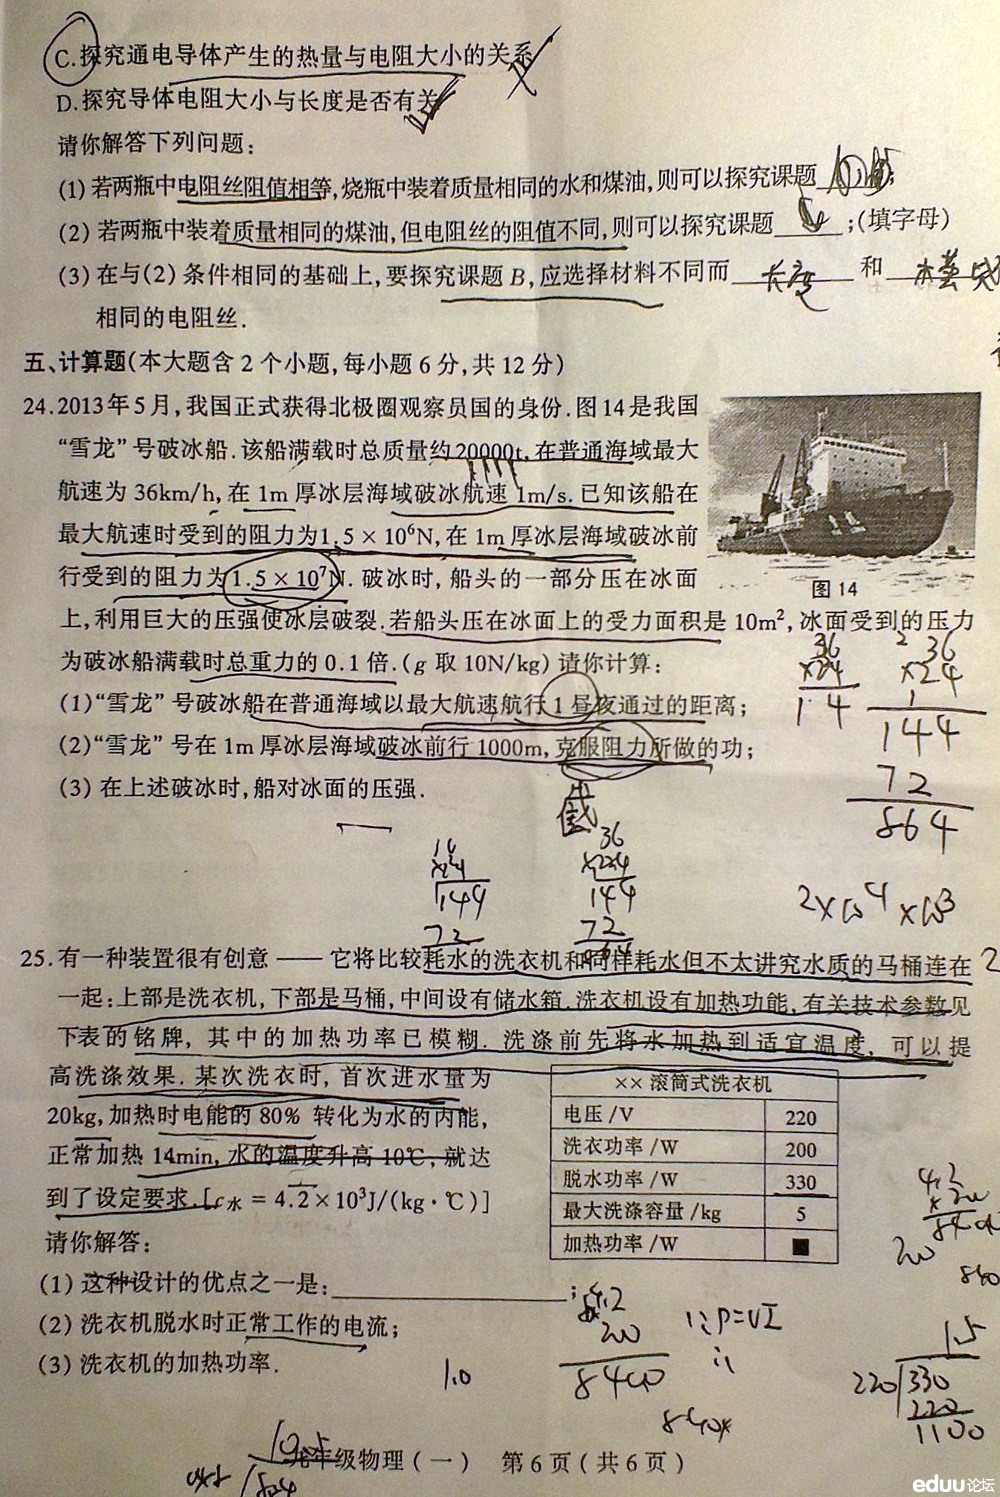 C.探究通电导体产生的热量与电阻大小的关系
D.探究导体电阻大小与长度是否有关
请你解答下列问题:
(1)若两瓶中电阻丝阻值相等,烧瓶中装着质量相同的水和煤油,则可以探究课题
(2)若两瓶中装着质量相同的煤油,但电阻丝的阻值不同,则可以探究课题______;(填字母)
(3)在与(2)条件相同的基础上,要探究课题B,应选择材料不同而 长度 和
相同的电阻丝.
五、计算题(本大题含2个小题,每小题6分,共12分)
24.2013年5月,我国正式获得北极圈观察员国的身份.图14是我国
“雪龙”号破冰船.该船满载时总质量约20000t,在普通海域最大
航速为36km/h,在1m厚冰层海域破冰航速1m/s.已知该船在
最大航速时受到的阻力为1.5×10⁶N,在1m厚冰层海域破冰前
行受到的阻力为1.5×10⁷N.破冰时,船头的一部分压在冰面
图14
上,利用巨大的压强使冰层破裂.若船头压在冰面上的受力面积是10m²,冰面受到的压力
为破冰船满载时总重力的0.1倍.(g取10N/kg)请你计算:
(1)“雪龙”号破冰船在普通海域以最大航速航行1昼夜通过的距离;
(2)“雪龙”号在1m厚冰层海域破冰前行1000m,克服阻力所做的功;
(3)在上述破冰时,船对冰面的压强.
36
×24
14
36
×24
144
72
864
36
144
72
2×10⁴×10³
25.有一种装置很有创意——它将比较耗水的洗衣机和同样耗水但不太讲究水质的马桶连在
一起:上部是洗衣机,下部是马桶,中间设有储水箱.洗衣机设有加热功能,有关技术参数见
下表的铭牌,其中的加热功率已模糊.洗涤前先将水加热到适宜温度,可以提
高洗涤效果.某次洗衣时,首次进水量为
20kg,加热时电能的80%转化为水的内能,
正常加热14min,水的温度升高10℃,就达
到了设定要求.[c水=4.2×10³J/(kg·℃)]
××滚筒式洗衣机
电压/V 220
洗衣功率/W 200
脱水功率/W 330
最大洗涤容量/kg 5
加热功率/W ■
请你解答:
(1)这种设计的优点之一是:____________________;
(2)洗衣机脱水时正常工作的电流;
(3)洗衣机的加热功率.
∵P=UI
8400
1.0
1.5
220 330
220
1100
九年级物理(一) 第6页(共6页)
eduu论坛